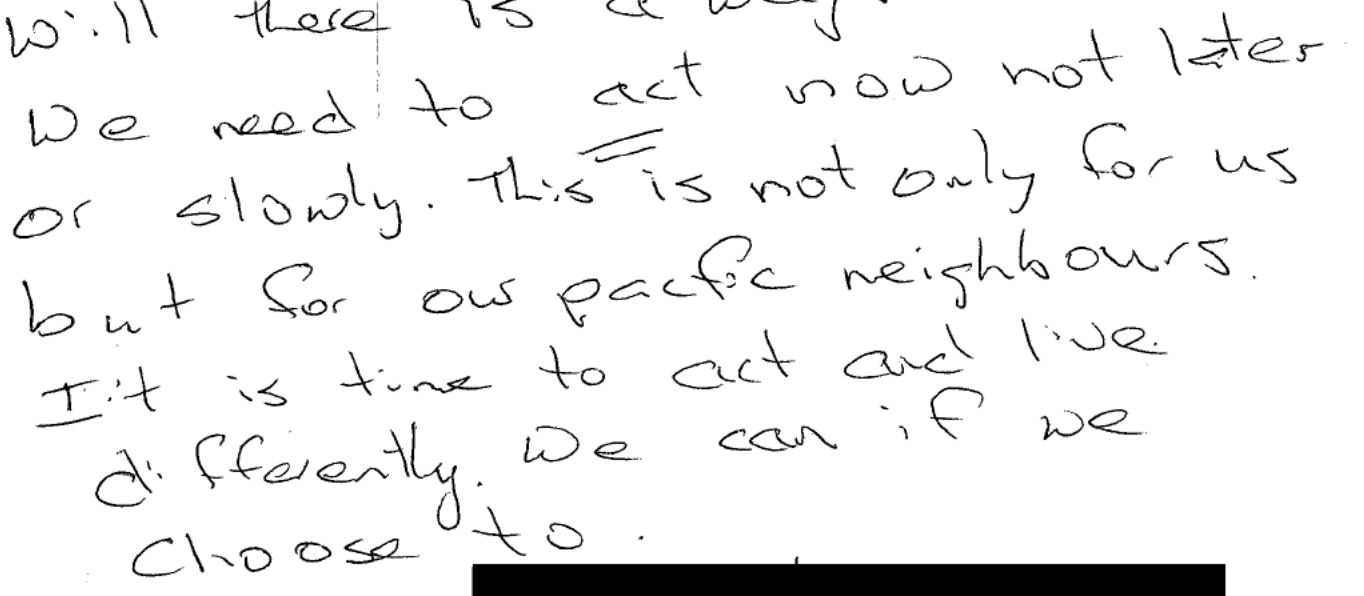 will there is a way.
We need to act now not later
or slowly. This is not only for us
but for our pacfic neighbours.
Iit is time to act and live
differently. We can if we
choose to.